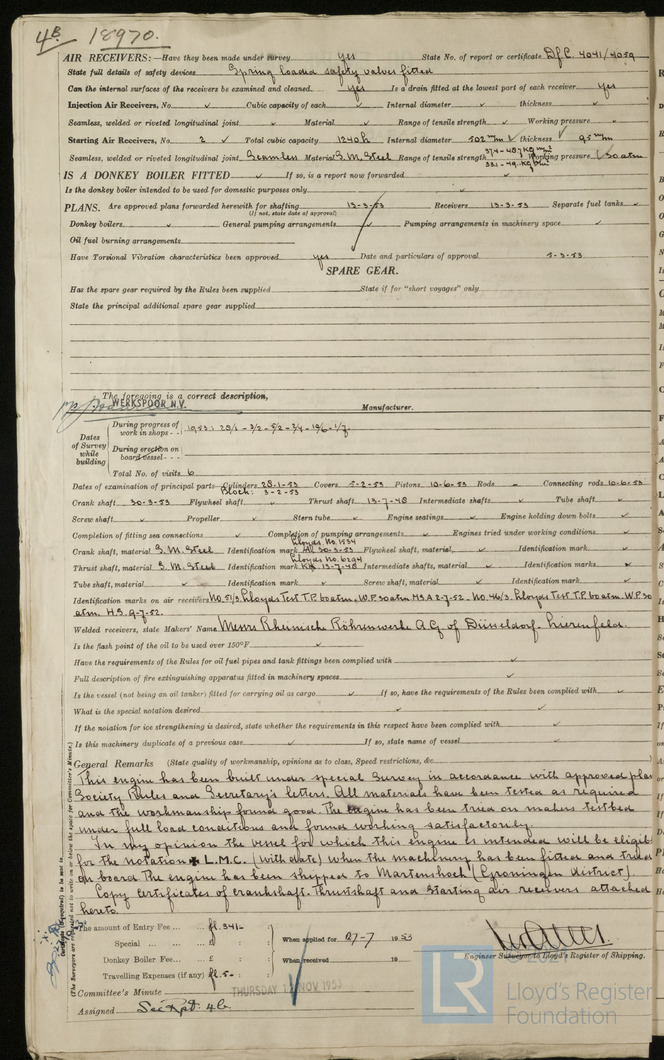 4B 18970.
AIR RECEIVERS:—Have they been made under survey yes State No. of report or certificate D/C. 4041/4059
State full details of safety devices Spring loaded safety valves fitted
Can the internal surfaces of the receivers be examined and cleaned yes Is a drain fitted at the lowest part of each receiver yes
Injection Air Receivers, No. Cubic capacity of each Internal diameter thickness
Seamless, welded or riveted longitudinal joint Material Range of tensile strength Working pressure
Starting Air Receivers, No. 2 Total cubic capacity 1240 Internal diameter 502 mm thickness 9,5 mm
Seamless, welded or riveted longitudinal joint Seamless Material S.M. Steel Range of tensile strength Working pressure 30 atm
IS A DONKEY BOILER FITTED If so, is a report now forwarded
Is the donkey boiler intended to be used for domestic purposes only
PLANS. Are approved plans forwarded herewith for shafting 13-3-53 Receivers 13-3-53 Separate fuel tanks
(If not, state date of approval)
Donkey boilers General pumping arrangements Pumping arrangements in machinery space
Oil fuel burning arrangements
Have Torsional Vibration characteristics been approved yes Date and particulars of approval 5-3-53
SPARE GEAR.
Has the spare gear required by the Rules been supplied State if for "short voyages" only
State the principal additional spare gear supplied
The foregoing is a correct description,
WERKSPOOR N.V. Manufacturer.
Dates of Survey while building
During progress of work in shops - - 1953: 28/1 - 3/2 - 5/2 - 3/4 - 10/6 - 1/7
During erection on board vessel - - -
Total No. of visits 6
Dates of examination of principal parts—Cylinders 28-1-53 Covers 5-2-53 Pistons 10-6-53 Rods - Connecting rods 10-6-53
Block: 3-2-53
Crank shaft 30-3-53 Flywheel shaft Thrust shaft 13-7-48 Intermediate shafts Tube shaft
Screw shaft Propeller Stern tube Engine seatings Engine holding down bolts
Completion of fitting sea connections Completion of pumping arrangements Engines tried under working conditions
Lloyds No. 1534
Crank shaft, material S.M. Steel Identification mark 30-3-53 Flywheel shaft, material Identification mark
Lloyds No. 6294
Thrust shaft, material S.M. Steel Identification mark 13-7-48 Intermediate shafts, material Identification marks
Tube shaft, material Identification mark Screw shaft, material Identification mark
Identification marks on air receivers No. 51/3. Lloyds Test T.P. 60 atm. W.P. 30 atm H.S. 2-7-52. No. 46/3. Lloyds Test T.P. 60 atm. W.P. 30
atm. H.S. 9-7-52.
Welded receivers, state Makers' Name Messrs Rheinische Röhrenwerke A.G. of Düsseldorf. Lierenfeld.
Is the flash point of the oil to be used over 150°F
Have the requirements of the Rules for oil fuel pipes and tank fittings been complied with
Full description of fire extinguishing apparatus fitted in machinery spaces
Is the vessel (not being an oil tanker) fitted for carrying oil as cargo If so, have the requirements of the Rules been complied with
What is the special notation desired
If the notation for ice strengthening is desired, state whether the requirements in this respect have been complied with
Is this machinery duplicate of a previous case If so, state name of vessel
General Remarks (State quality of workmanship, opinions as to class, Speed restrictions, &c.
This engine has been built under special Survey in accordance with approved plans
Society Rules and Secretary's letters. All materials have been tested as required
and the workmanship found good. The engine has been tried on makers testbed
under full load conditions and found working satisfactorily.
In my opinion the vessel for which this engine is intended will be eligible
for the notation ✠ L.M.C. (with date) when the machinery has been fitted and tried
on board. The engine has been shipped to Martenshoek (Groningen district).
Copy certificates of crankshaft. Thrustshaft and Starting air receivers attached
hereto.
(The Surveyors are requested not to write on or below the space for Committee's Minute.)
The amount of Entry Fee ... fl. 341-
Special ... £
Donkey Boiler Fee ... £
Travelling Expenses (if any) fl. 5-
When applied for 27-7 1953
When received 19
Engineer Surveyor to Lloyd's Register of Shipping.
Committee's Minute THURSDAY 12 NOV 1953
Assigned See Rpt. 4b
LR Lloyd's Register Foundation